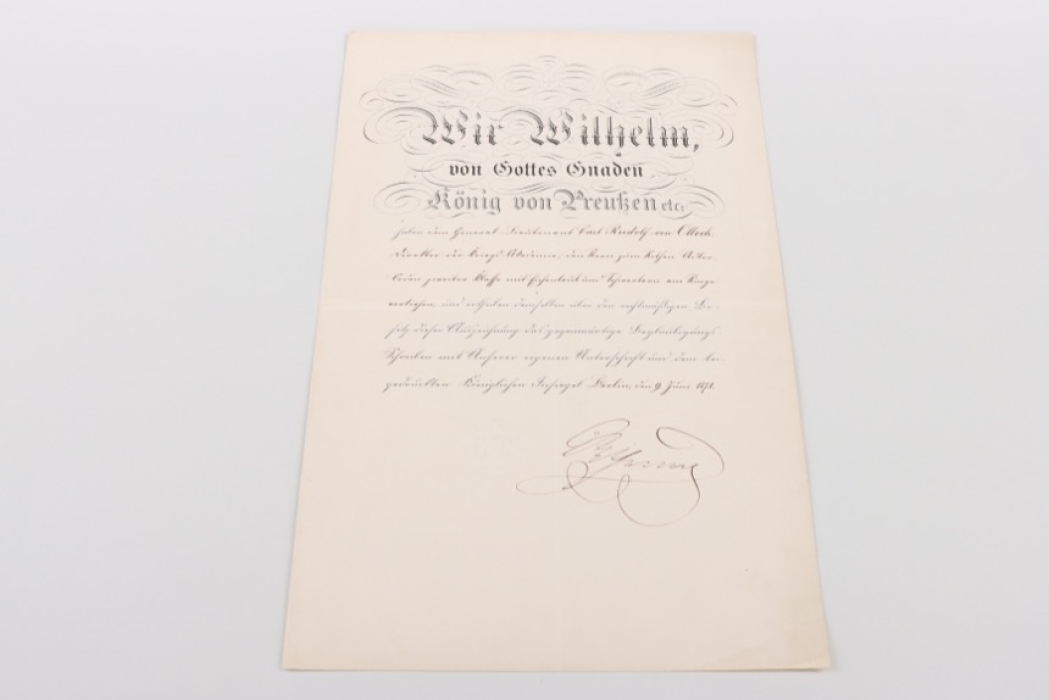 Wir Wilhelm,
von Gottes Gnaden
König von Preußen etc.
haben dem General Lieutenant Carl Rudolf von Ollech
Direktor der Kriegs Akademie, den Stern zum Rothen Adler
Orden zweiter Klasse mit Eichenlaub und Schwertern am Ringe
verliehen, und ertheilen demselben über den rechtmäßigen Be-
sitz dieser Auszeichnung das gegenwärtige Beglaubigungs
Schreiben mit Unserer eigenen Unterschrift und dem bei
gedruckten Königlichen Insiegel. Berlin, den 9 Juni 1871.
Wilhelm